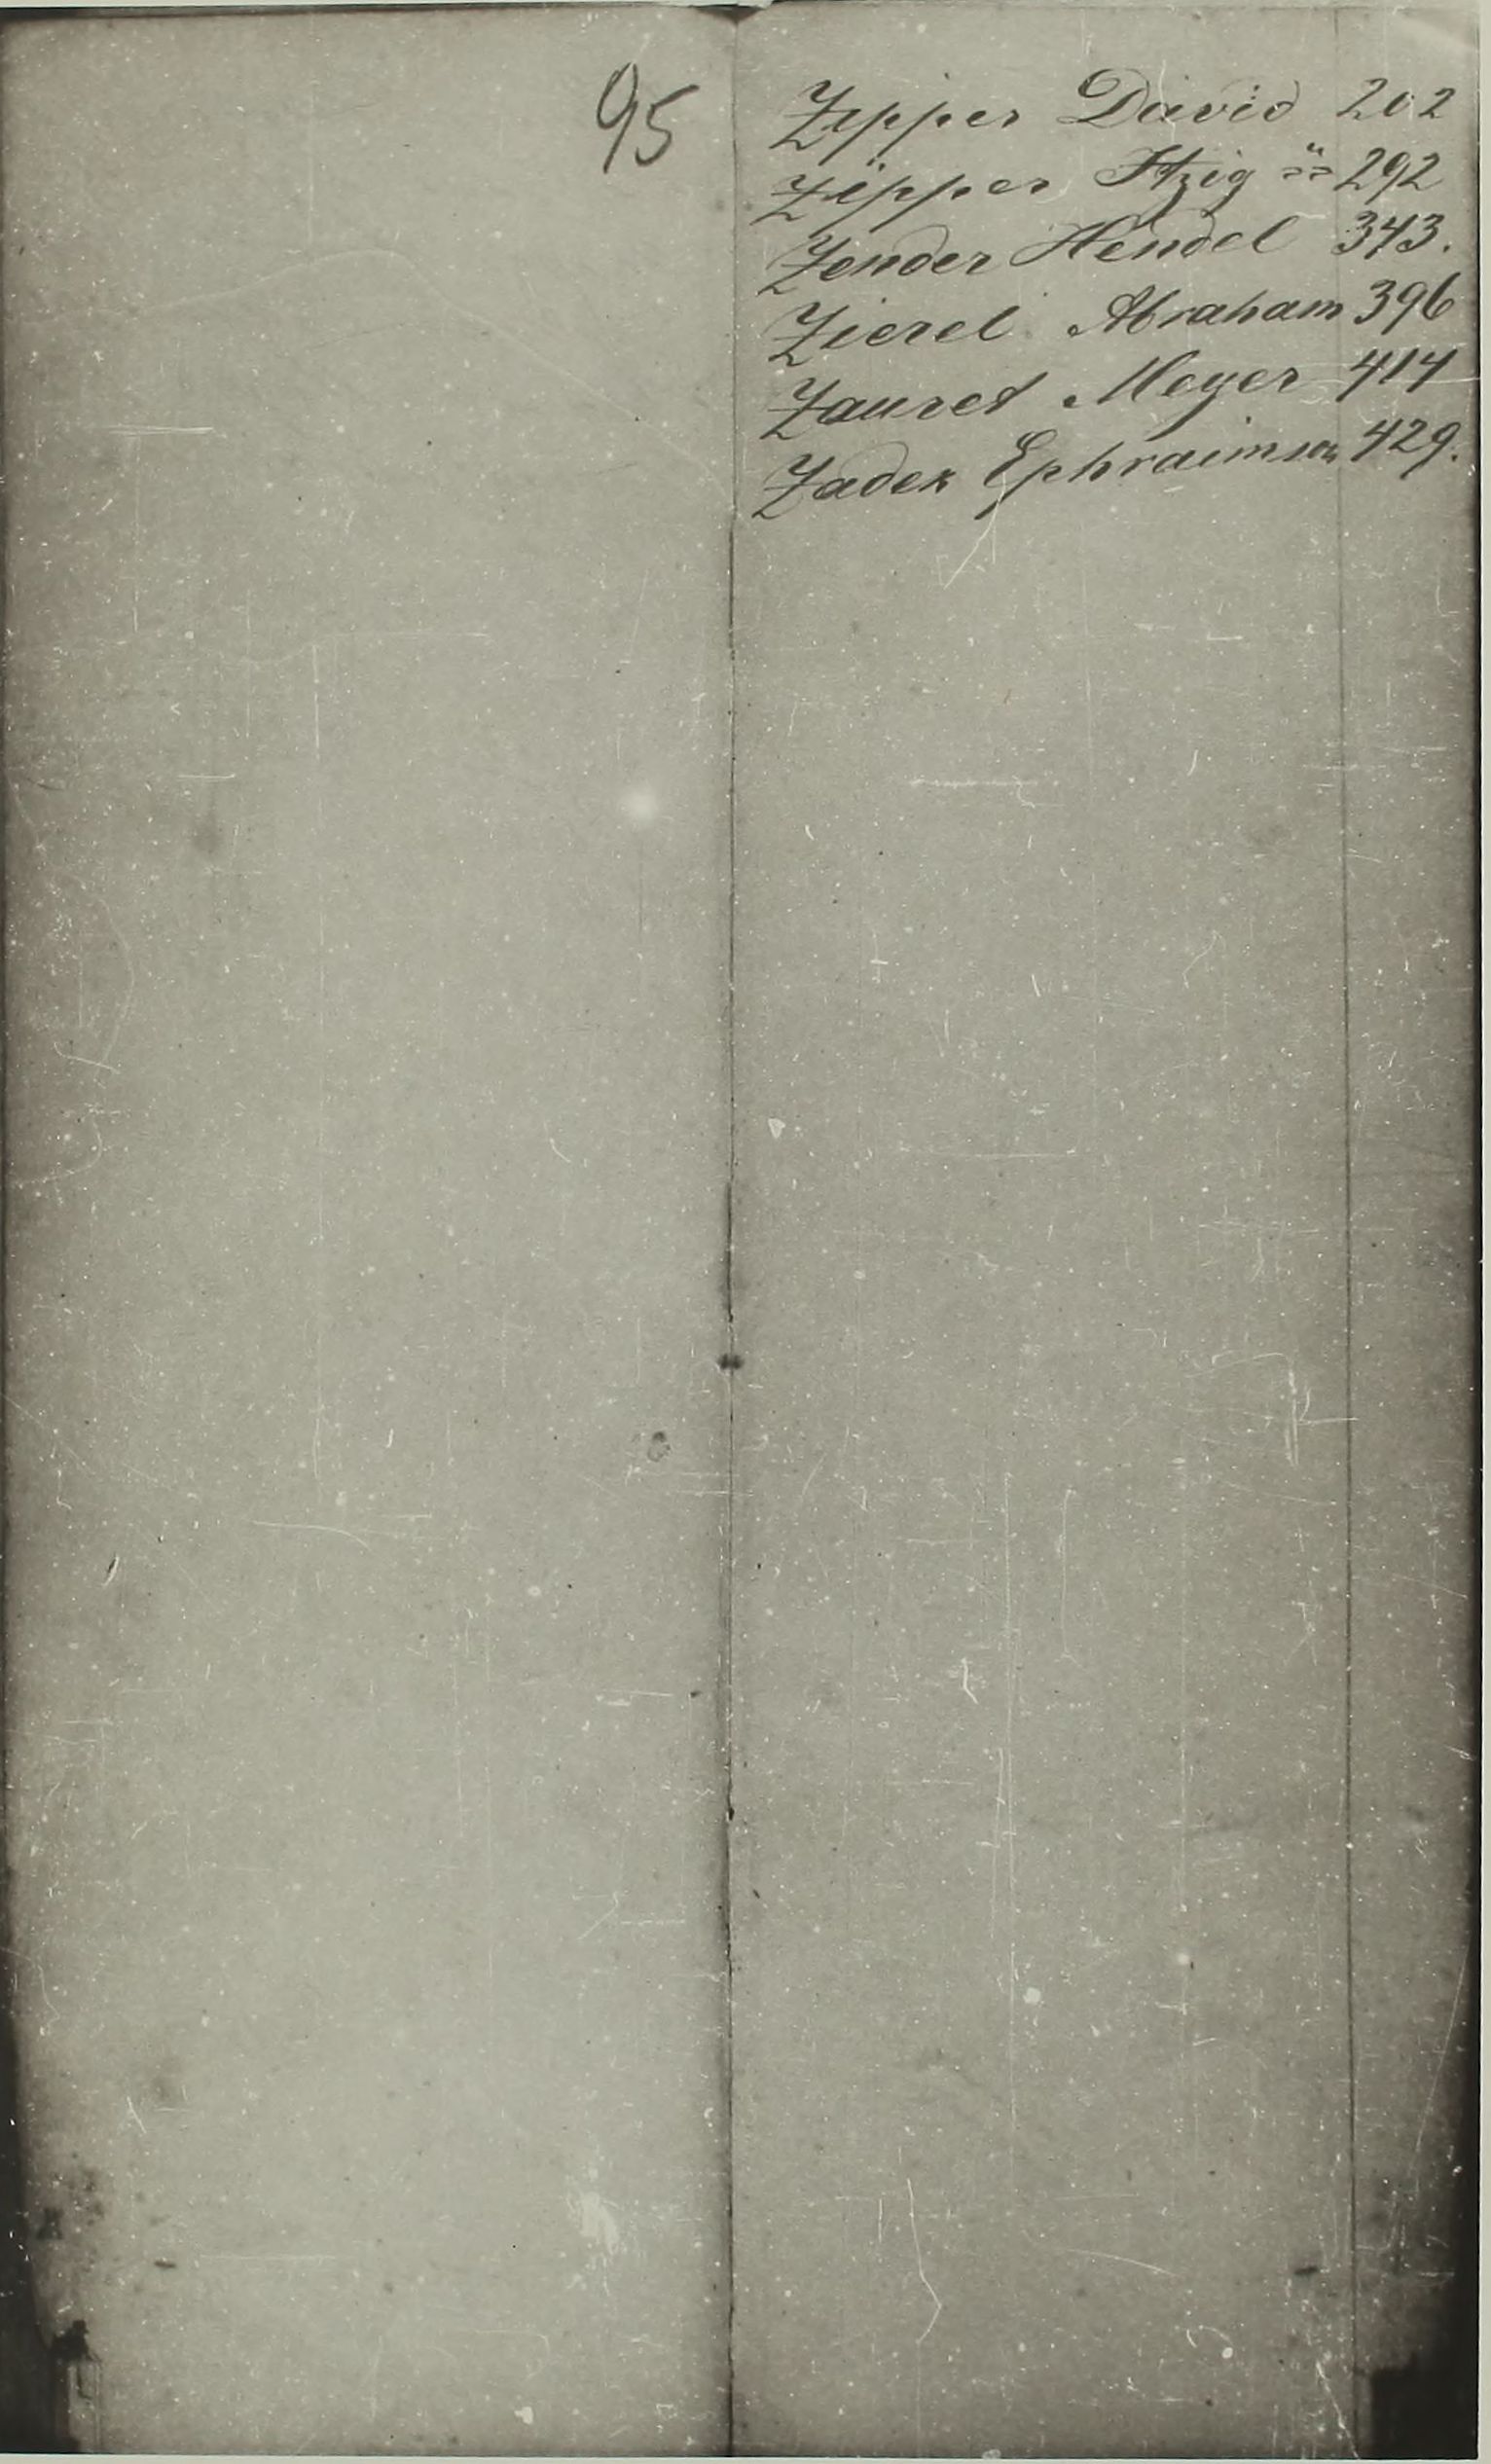 95
Zipper David 202
Zipper Itzig 292
Zender Hendel 343.
Zierel Abraham 396
Zauret Meyer 414
Zadek Ephraimson 429.